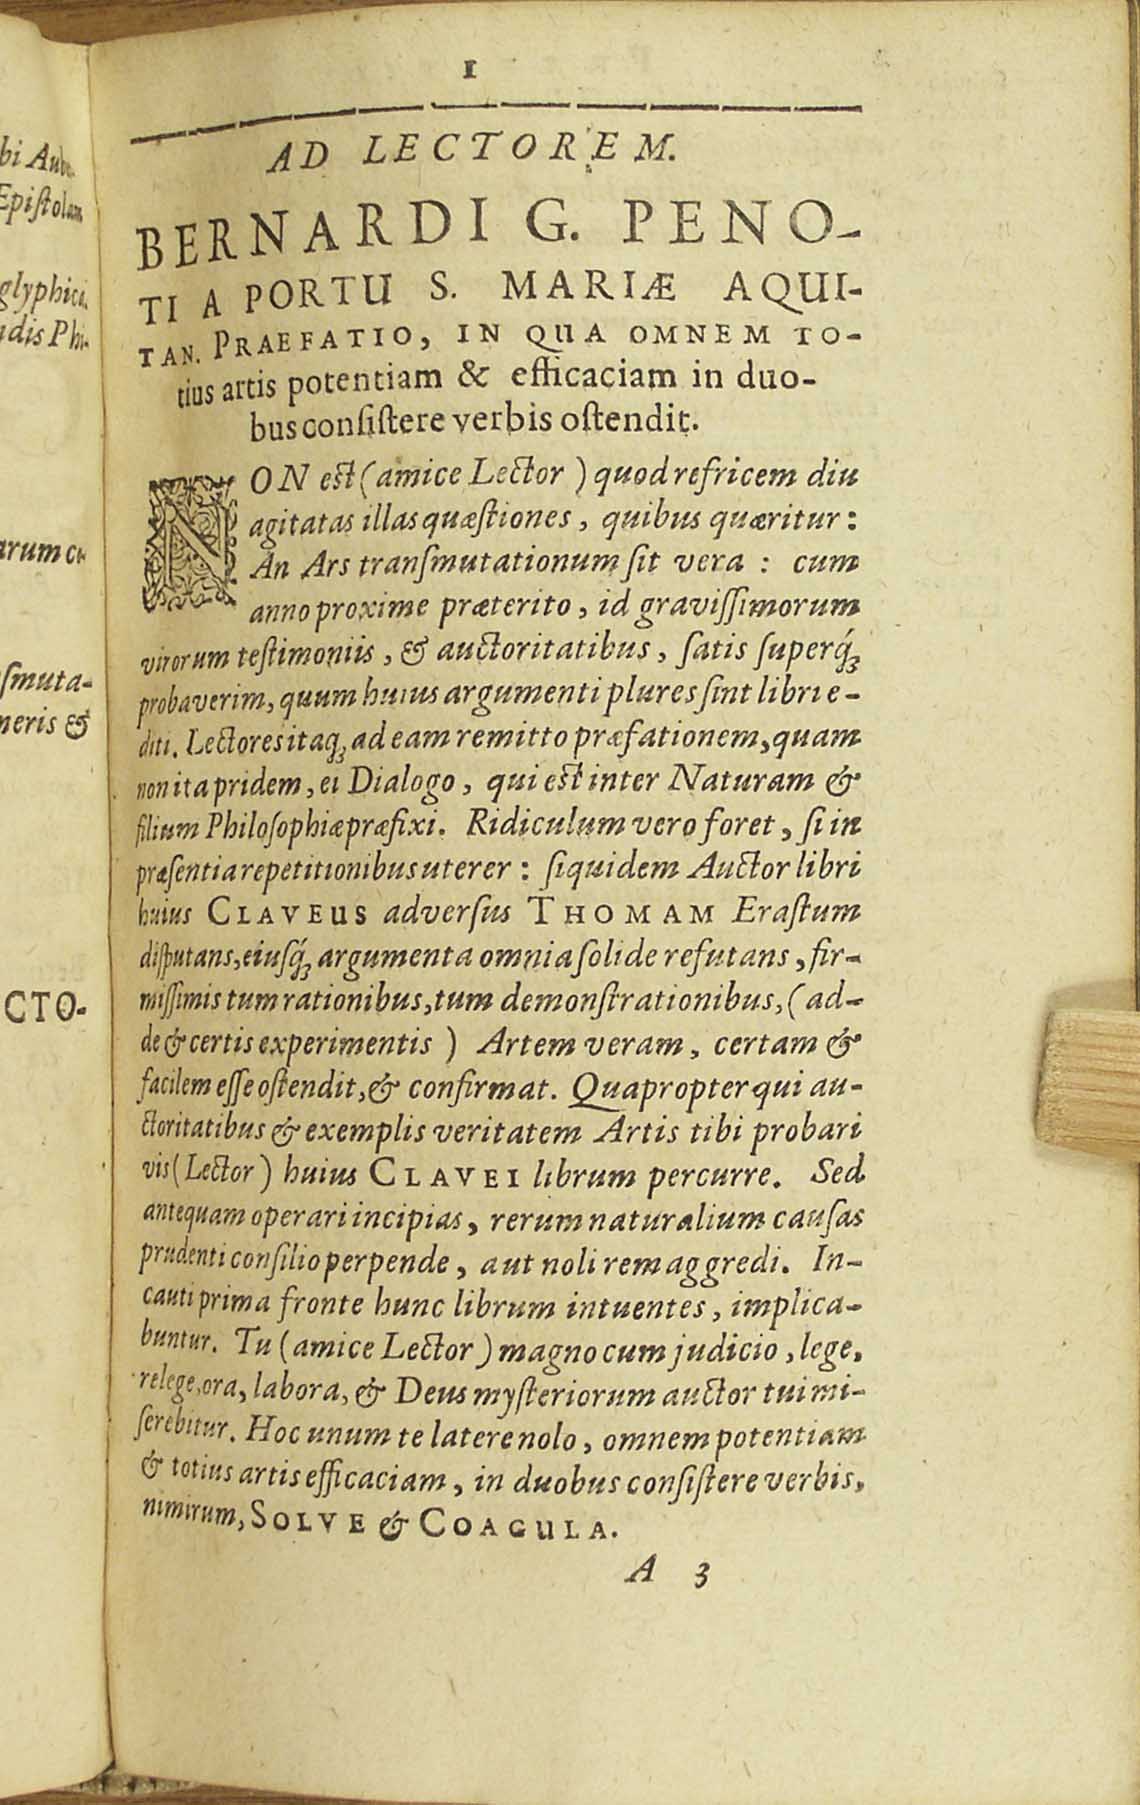 bi Aube
Epiſtolam
glyphici
udis Phi-
arum
ſmuta-
neris &
CTO-
1
AD LECTOREM.
BERNARDI G. PENO-
TI A PORTU S. MARIÆ AQUI-
TAN. PRAEFATIO, IN QUA OMNEM TO-
tius artis potentiam & efficaciam in duo-
bus conſiſtere verbis oſtendit.
NON eſt (amice Lector) quod refricem diu
agitatas illas quæſtiones, quibus quæritur:
An Ars tranſmutationum ſit vera: cum
anno proxime præterito, id graviſſimorum
virorum teſtimoniis, & auctoritatibus, ſatis ſuperq́ꝫ
probaverim, quum huius argumenti plures ſint libri e-
diti. Lectores itaqꝫ ad eam remitto præfationem, quam
non ita pridem, ei Dialogo, qui eſt inter Naturam &
filium Philoſophiæ præfixi. Ridiculum vero foret, ſi in
præſentia repetitionibus uterer: ſiquidem Auctor libri
huius CLAVEUS adverſus THOMAM Eraſtum
diſputans, eiuſq́ꝫ argumenta omnia ſolide refutans, fir-
miſſimis tum rationibus, tum demonſtrationibus, (ad-
de & certis experimentis) Artem veram, certam &
facilem eſſe oſtendit, & confirmat. Quapropter qui au-
ctoritatibus & exemplis veritatem Artis tibi probari
vis (Lector) huius CLAVEI librum percurre. Sed
antequam operari incipias, rerum naturalium cauſas
prudenti conſilio perpende, aut noli rem aggredi. In-
cauti prima fronte hunc librum intuentes, implica-
buntur. Tu (amice Lector) magno cum judicio, lege,
relege, ora, labora, & Deus myſteriorum auctor tui mi-
ſerebitur. Hoc unum te latere nolo, omnem potentiam
& totius artis efficaciam, in duobus conſiſtere verbis,
nimirum, SOLVE & COAGULA.
A 3